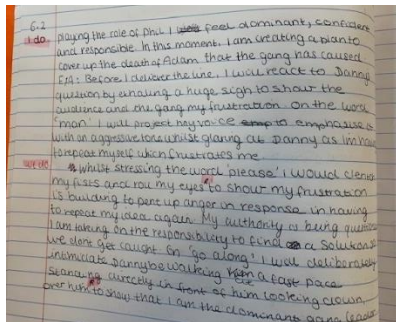 6.2
I do playing the role of Phil I feel dominant, confident
and responsible. In this moment, I am creating a plan to
cover up the death of Adam that the gang has caused
Before I deliver the line, I will react to Danny
question by exhaling a huge sigh to show the
audience and the gang my frustration. On the word
'man' I will project my voice to emphasise
with an aggressive tone whilst glaring at Danny as Im having
to repeat myself which frustrates me.
whilst stressing the word 'please' I would clench
my fists and roll my eyes to show my frustration
is building to pent up anger in response in having
to repeat my idea again. My authority is being
I am taking on the responsibility to find a solution so
we dont get caught. On 'go along' I will deliberately
intimidate Danny be walking a fast pace
standing directly in front of him looking down,
over him to show that I am the dominant gang leader